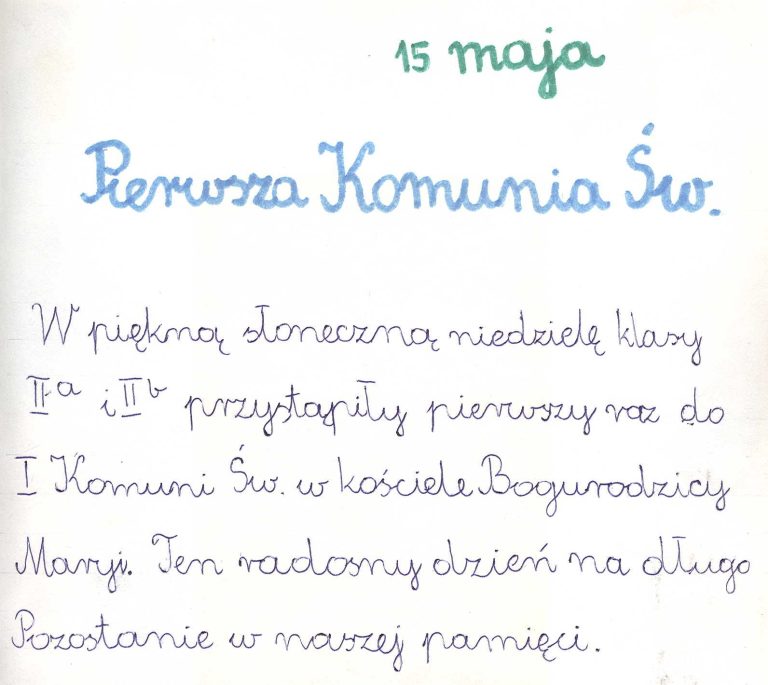 15 maja
Pierwsza Komunia Św.
W piękną słoneczną niedzielę klasy
II a i II b przystąpiły pierwszy raz do
I Komuni Św. w kościele Bogurodzicy
Maryi. Ten radosny dzień na długo
Pozostanie w naszej pamięci.